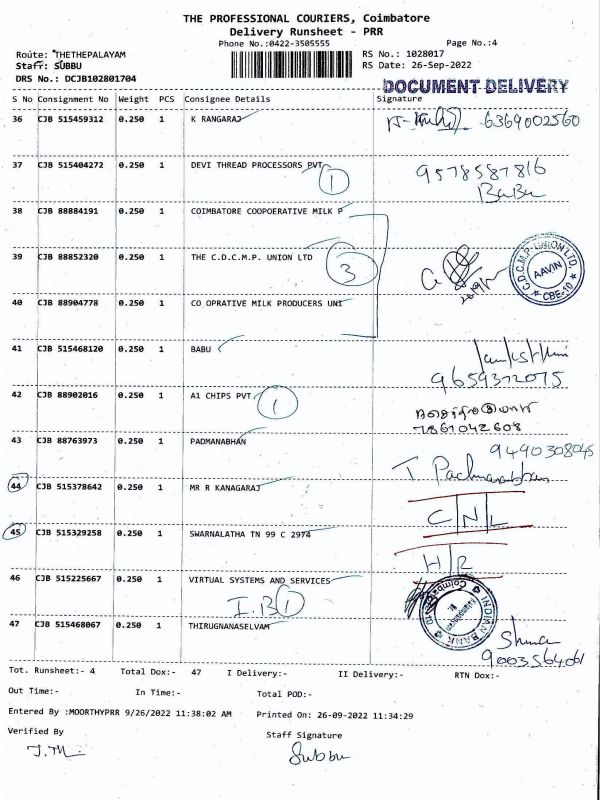 THE PROFESSIONAL COURIERS, Coimbatore
Delivery Runsheet - PRR
Phone No.:0422-3505555
Page No.:4
Route: *THETHEPALAYAM
RS No.: 1028017
Staff: SUBBU
RS Date: 26-Sep-2022
DRS No.: DCJB102801704
DOCUMENT DELIVERY
S No Consignment No Weight PCS Consignee Details Signature
36 CJB 515459312 0.250 1 K RANGARAJ 6369002560
37 CJB 515404272 0.250 1 DEVI THREAD PROCESSORS PVT 9578587816
1 Babu
38 CJB 88884191 0.250 1 COIMBATORE COOPOERATIVE MILK P
39 CJB 88852320 0.250 1 THE C.D.C.M.P. UNION LTD 3
C.D.C.M.P. UNION LTD. AAVIN CBE-10
40 CJB 88904778 0.250 1 CO OPRATIVE MILK PRODUCERS UNI
41 CJB 515468120 0.250 1 BABU
9659372075
42 CJB 88902016 0.250 1 A1 CHIPS PVT 1
7861042608
43 CJB 88763973 0.250 1 PADMANABHAN 9490308045
T. Padmanabhan
44 CJB 515378642 0.250 1 MR R KANAGARAJ
C N L
45 CJB 515329258 0.250 1 SWARNALATHA TN 99 C 2974
H R
46 CJB 515225667 0.250 1 VIRTUAL SYSTEMS AND SERVICES
I.B 1
INDIAN BANK
47 CJB 515468067 0.250 1 THIRUGNANASELVAM
9003564061
Tot. Runsheet:- 4 Total Dox:- 47 I Delivery:- II Delivery:- RTN Dox:-
Out Time:- In Time:- Total POD:-
Entered By :MOORTHYPRR 9/26/2022 11:38:02 AM Printed On: 26-09-2022 11:34:29
Verified By Staff Signature
Subbu